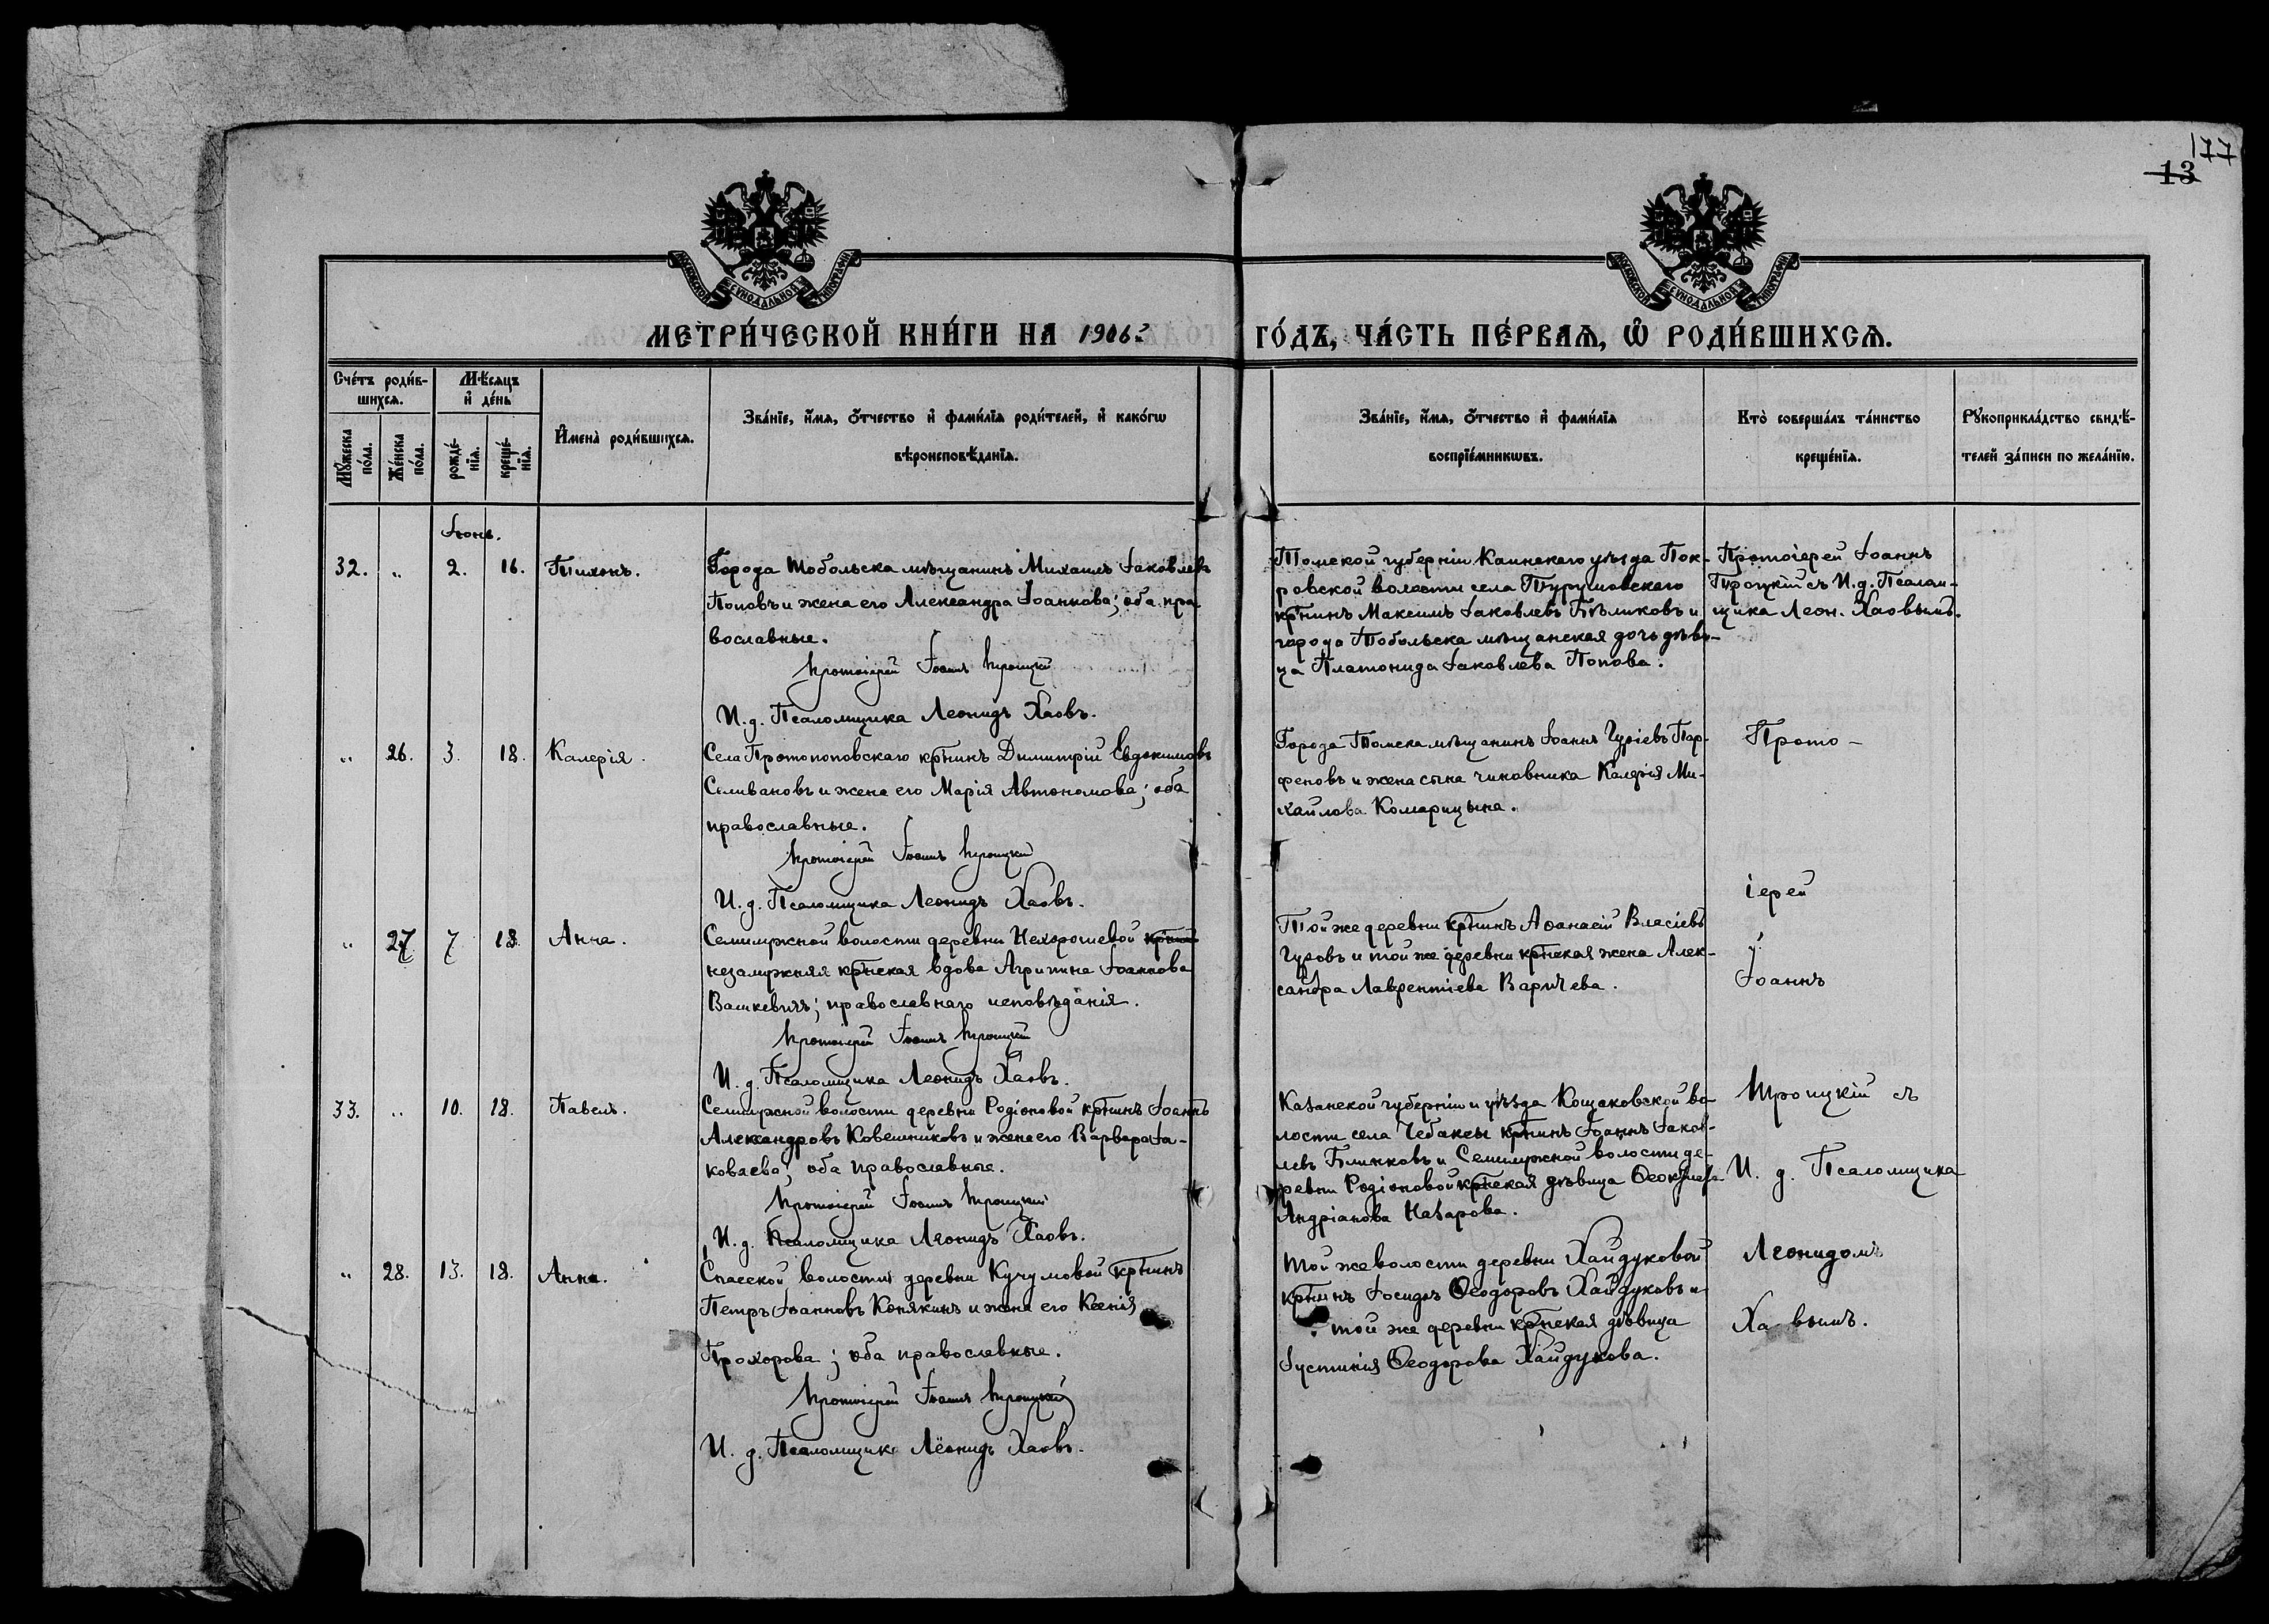 177
13
МОСКОВСКОЙ СѴНОДАЛЬНОЙ ТИПОГРАФІИ
МОСКОВСКОЙ СѴНОДАЛЬНОЙ ТИПОГРАФІИ
МЕТРИ́ЧЕСКОЙ КНИ́ГИ НА 1906 г.
ГО́ДЪ, ЧА́СТЬ ПЕ́РВАѦ, Ѡ҆ РОДИ́ВШИХСѦ.
Сче́тъ роди́в-
шихсѧ.
Мꙋ́жеска по́ла.
Же́нска по́ла.
Мѣ́сѧцъ
и҆ де́нь
рожде́-
нїѧ.
креще́-
нїѧ.
И҆мена̀ роди́вшихсѧ.
Зва́нїе, и҆́мѧ, ѻ҆́тчество и҆ фами́лїѧ роди́телей, и҆ како́гѡ
вѣроисповѣ́данїѧ.
Зва́нїе, и҆́мѧ, ѻ҆́тчество и҆ фами́лїѧ
воспрїе́мникѡвъ.
Кто̀ соверша́лъ та́инство
креще́нїѧ.
Рꙋкоприкла́дство свидѣ́-
телей за́писи по жела́нїю.
Іюнь.
32. „ 2. 16. Тихонъ.
Города Тобольска мѣщанинъ Михаилъ Іаковлевъ
Поповъ и жена его Александра Іоаннова; оба пра-
вославные.
Протоіерей Іоаннъ Троицкій
И. д. Псаломщика Леонидъ Хаовъ.
Томской губерніи Каинскаго уѣзда Пок-
ровской волости села Турумовскаго
кр͞нинъ Максимъ Іаковлевъ Бѣликовъ и
города Тобольска мѣщанская дочь дѣви-
ца Платонида Іаковлева Попова.
Протоіерей Іоаннъ
Троицкій съ И. д. Псалом-
щика Леон. Хаовымъ.
„ 26. 3. 18. Калерія.
Села Протопоповскаго кр͞нинъ Димитрій Евдокимовъ
Селивановъ и жена его Марія Автономова; оба
православные.
Протоіерей Іоаннъ Троицкій
И. д. Псаломщика Леонидъ Хаовъ.
Города Томска мѣщанинъ Іоаннъ Гуріевъ Пар-
феновъ и жена сына чиновника Калерія Ми-
хайлова Комарицына.
Прото-
іерей
„ 27 7 18. Анна.
Семилужной волости деревни Нехорошевой кр͞нин
незамужняя кр͞нская вдова Агрипина Іоаннова
Вашкевичъ; православнаго исповѣданія.
Протоіерей Іоаннъ Троицкій
И. д. Псаломщика Леонидъ Хаовъ.
Той же деревни кр͞нинъ Аѳанасій Власіевъ
Гуровъ и той же деревни кр͞нская жена Алек-
сандра Лаврентіева Варичева.
Іоаннъ
33. „ 10. 18. Павелъ.
Семилужной волости деревни Родіоновой кр͞нинъ Іоаннъ
Александровъ Ковешниковъ и жена его Варвара Іа-
ковлева; оба православные.
Протоіерей Іоаннъ Троицкій
И. д. Псаломщика Леонидъ Хаовъ.
Казанской губерніи и уѣзда Кощаковской во-
лости села Чебаксы кр͞нинъ Іоаннъ Іаков-
левъ Блинковъ и Семилужной волости де-
ревни Родіоновой кр͞нская дѣвица
Андріанова Назарова.
Троицкій съ
И. д. Псаломщика
„ 28. 13. 18. Анна.
Спасской волости деревни Кучумовой кр͞нинъ
Петръ Іоанновъ Конякинъ и жена его Ксенія
Прохорова; оба православные.
Протоіерей Іоаннъ Троицкій
И. д. Псаломщика Леонидъ Хаовъ.
Той же волости деревни Хайдуковой
кр͞нинъ Ѳеодоровъ Хайдуковъ и
той же деревни кр͞нская дѣвица
Іустинія Ѳеодорова Хайдукова.
Леонидомъ
Хаовымъ.